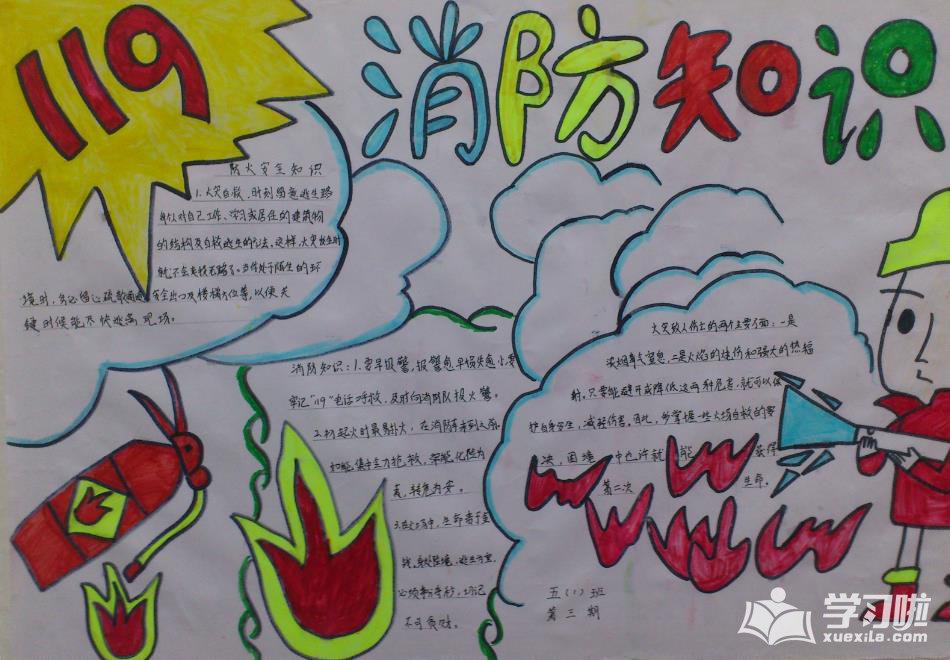 119
消防知识
防火安全知识
1.火灾自救，时刻留意逃生路
每个人对自己工作、学习或居住的建筑物
的结构及自救逃生的方法，这样，火灾发生时
就不会走投无路了。当你处于陌生的环
境时，务必留心疏散通道、安全出口及楼梯方位等，以便关
键时候能尽快逃离现场。
消防知识：1.要早报警，报警愈早损失愈小，要
牢记"119"电话呼救，及时向消防队报火警。
在消防车来到之前，
如能集中全力抢救，
生命贵于金
钱，身处险境，逃生为重，
必须争分夺秒，切记
不可贪财。
火灾致人伤亡的两个主要方面：一是
浓烟毒气窒息，二是火焰的烧伤和强大的热辐
射。只要能避开或降低这两种危害，就可以保
护自身安全，减轻伤害。因此，多掌握一些火场自救的要
诀，困境中也许就能获得
第二次生命。
五(1)班
第三期
学习啦
xuexila.com